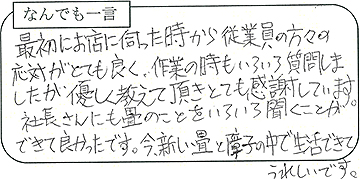 なんでも一言
最初にお店に伺った時から従業員の方々の
応対がとても良く、作業の時もいろいろ質問しま
したが優しく教えて頂きとても感謝しています。
社長さんにも畳のことをいろいろ聞くことが
できて良かったです。今、新しい畳と障子の中で生活できて
うれしいです。